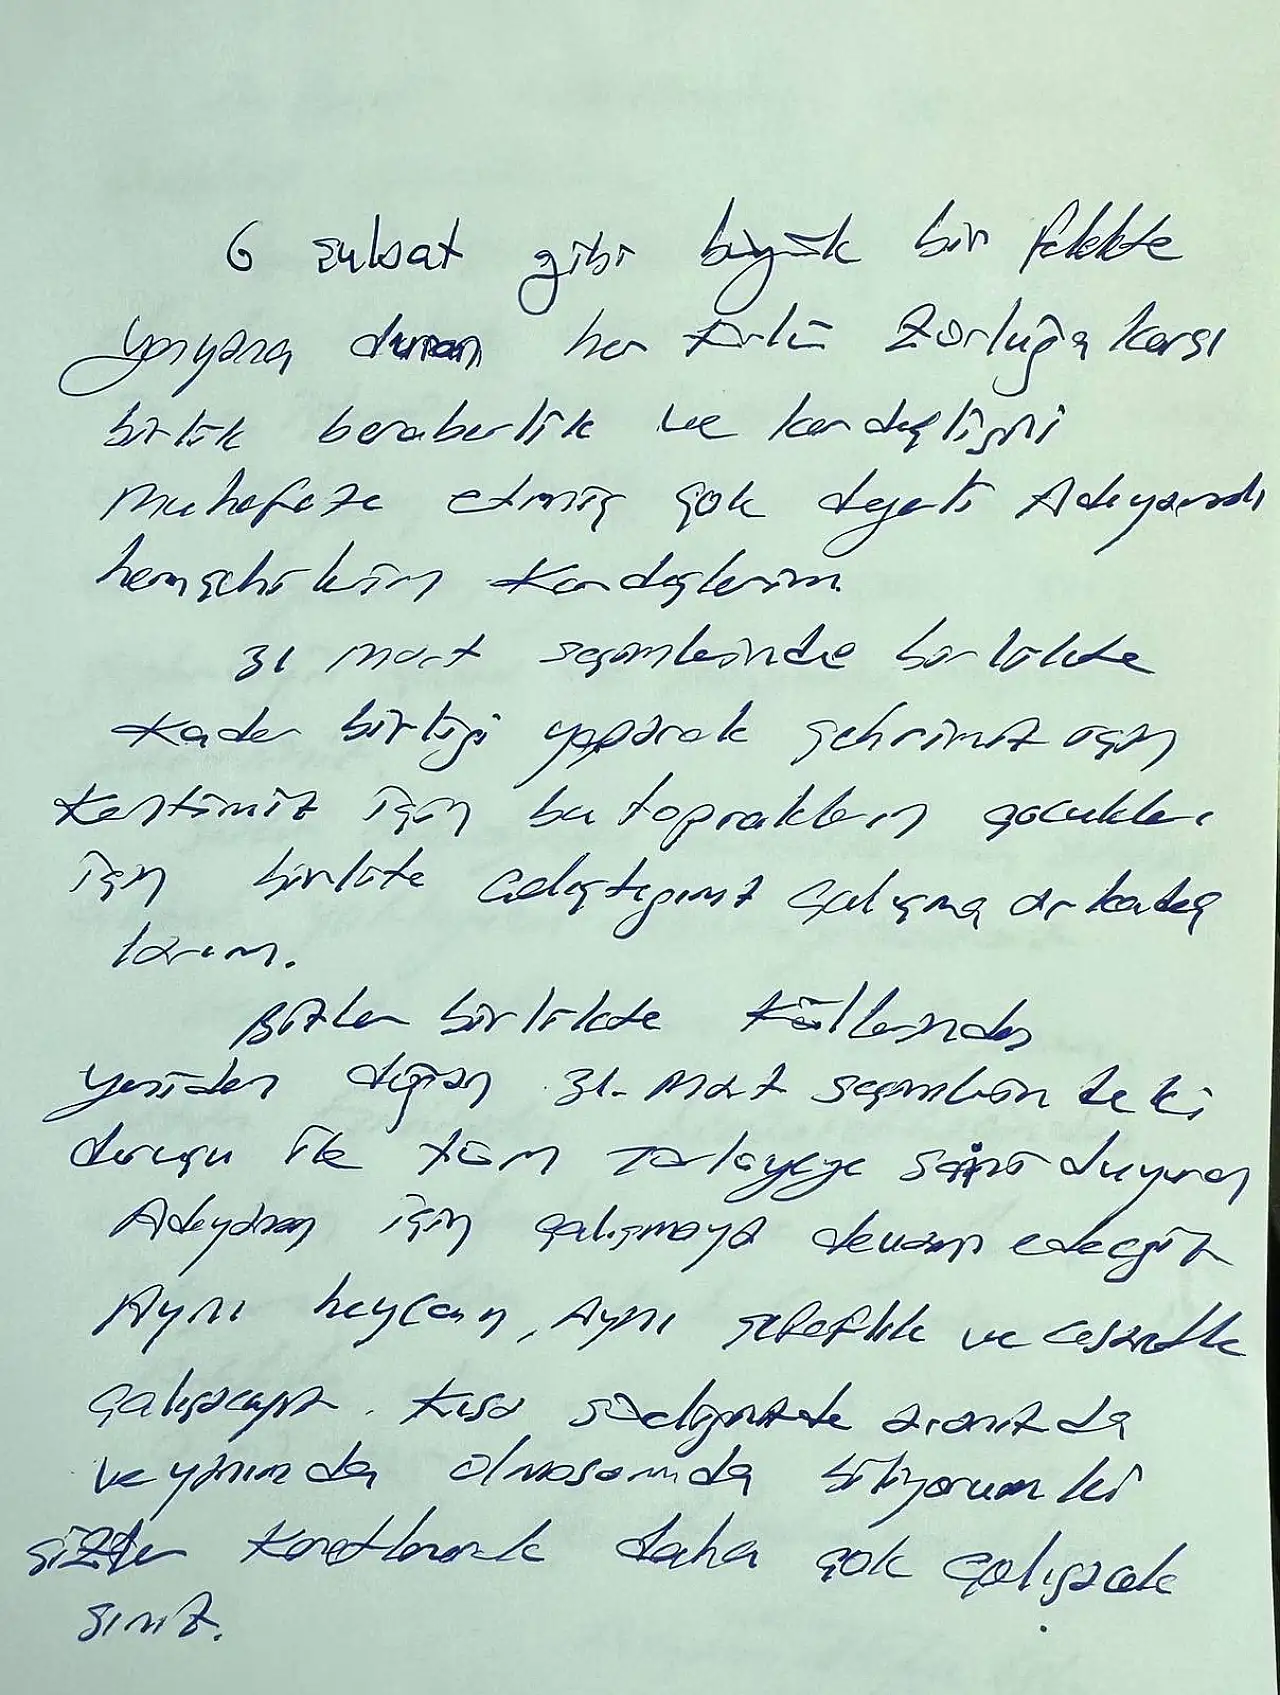 6 şubat gibi büyük bir felekte
yanyana duran her türlü zorluğa karşı
birlik beraberlik ve kardeşliğini
muhafaza etmiş çok değerli Adıyamanlı
hemşehrilerim kardeşlerim.
31 mart seçimlerinde birlikte
kader birliği yaparak şehrimiz için
kentimiz için bu toprakların çocukları
için birlikte çalıştığımız çalışma arkadaş
larım.
Bizler birlikte küllerinden
yeniden doğan 31. Mart seçimlerindeki
duruşu ile tüm Türkiyeye sesini duyuran
Adıyaman için çalışmaya devam edeceğiz
Aynı heyecan, Aynı şeffaflık ve cesaretle
çalışacağız. Kısa süreliğinede aranızda
ve yanınızda olmasamda biliyorum ki
sizler kenetlenerek daha çok çalışacak
sınız.